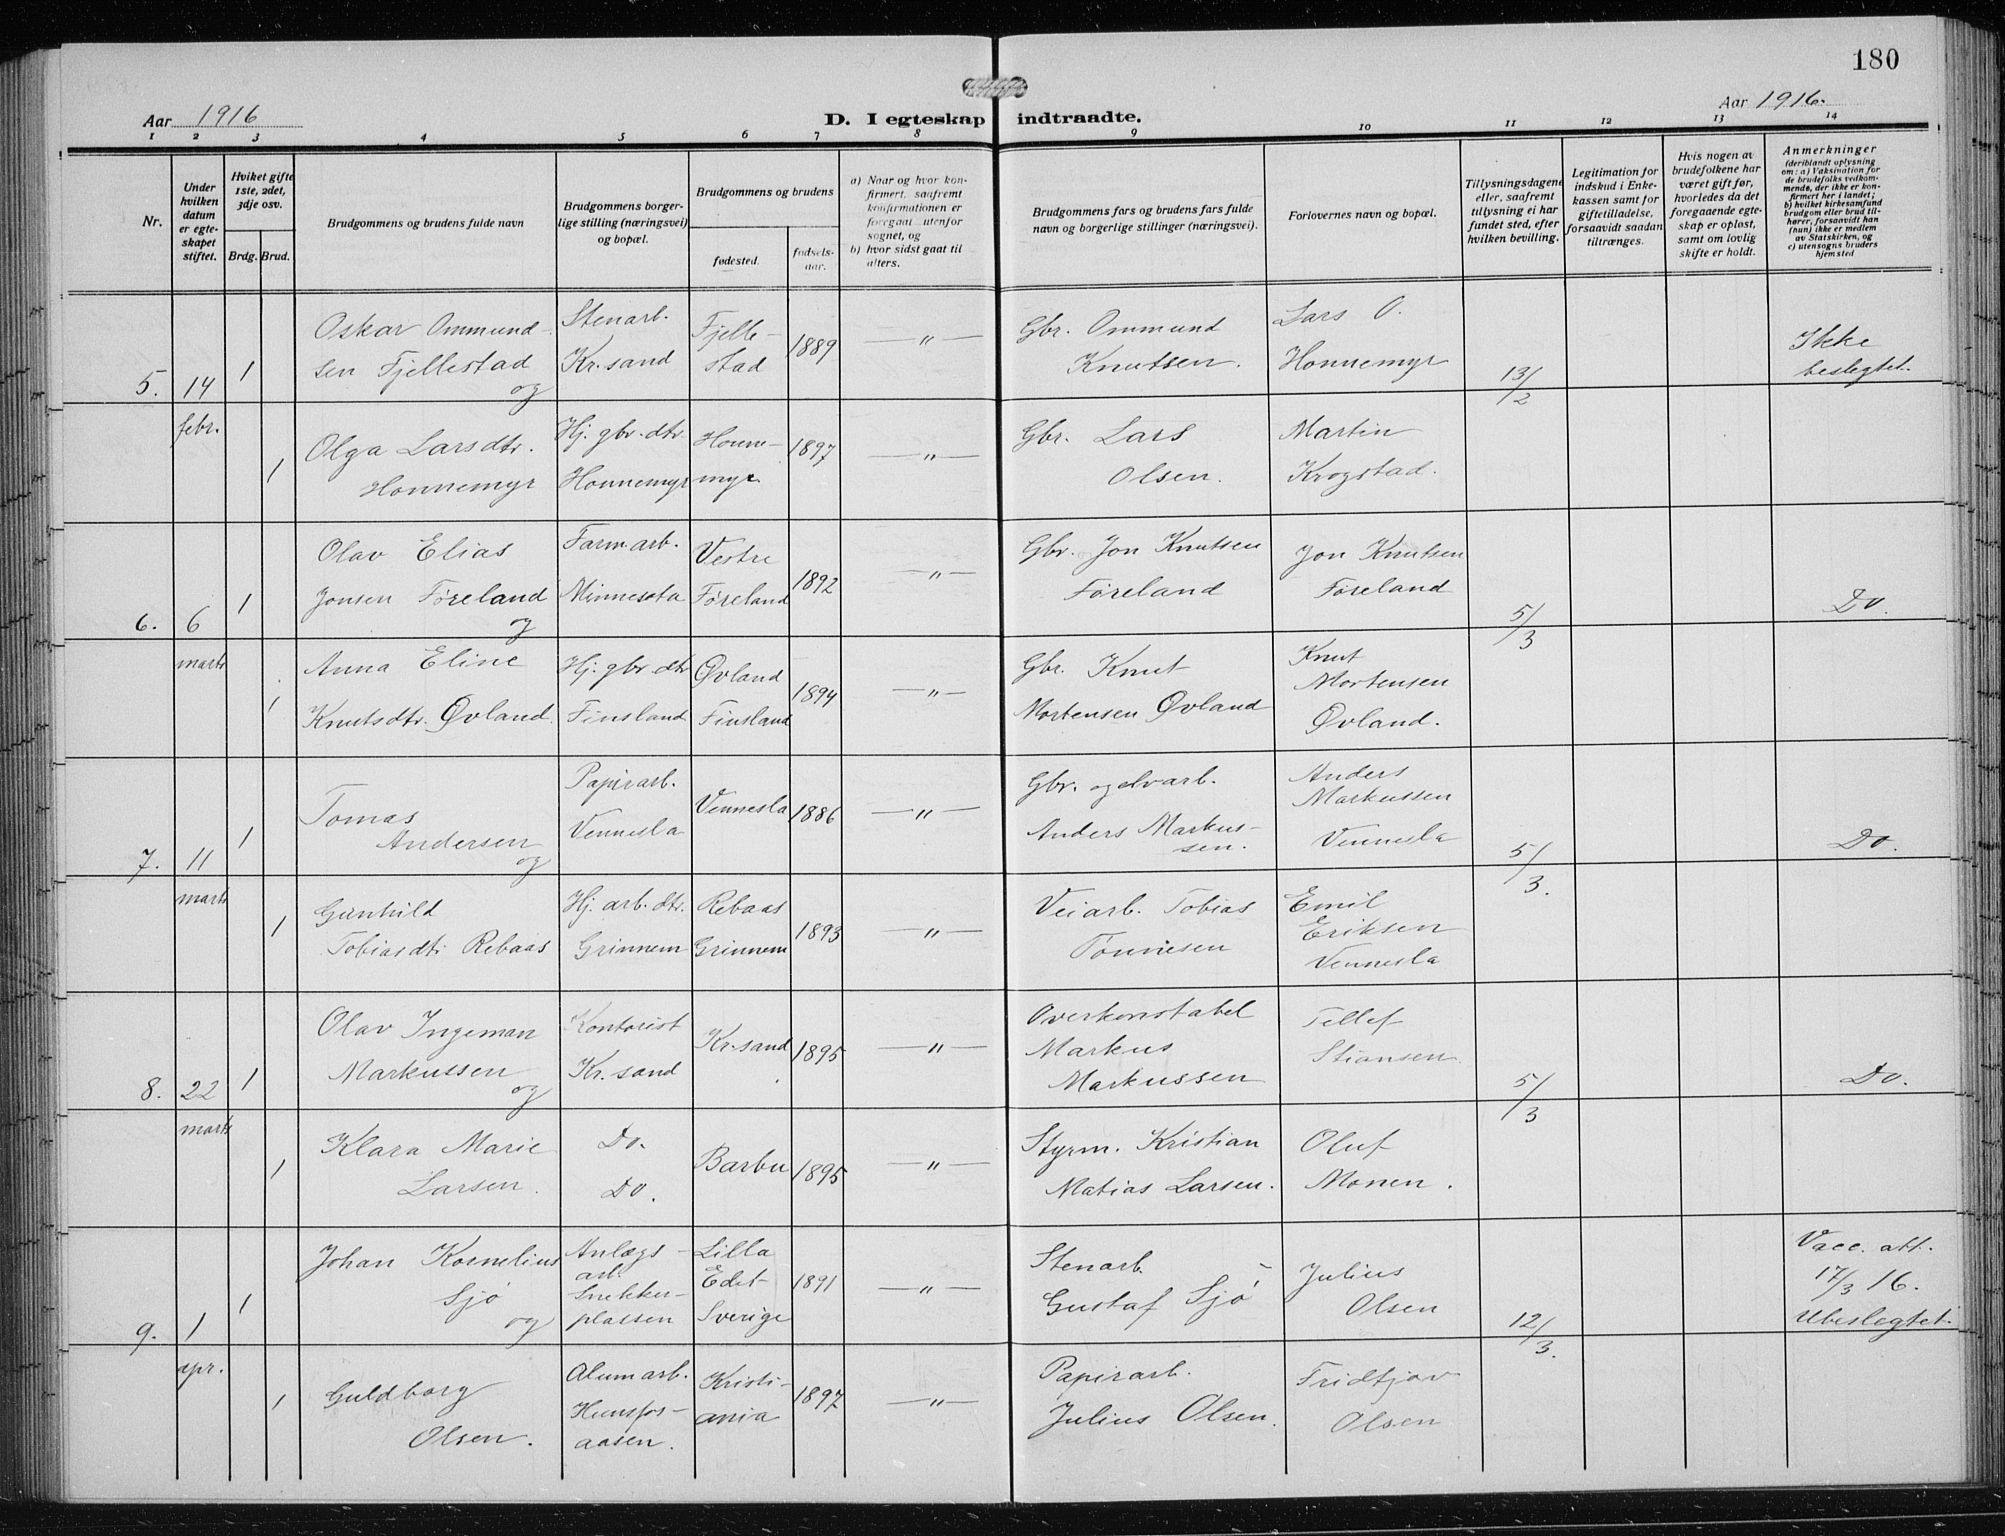 180
Aar 1916
D. I egteskap indtraadte.
Aar 1916.
1 2 3 4 5 6 7 8 9 10 11 12 13 14
Nr.
Under hvilken datum er egteskapet stiftet.
Hviket gifte 1ste, 2det, 3dje osv.
Brdg. Brud.
Brudgommens og brudens fulde navn
Brudgommens borgerlige stilling (næringsvei) og bopæl.
Brudgommens og brudens
fødested.
fødselsaar.
a) Naar og hvor konfirmert, saafremt konfirmationen er foregaat utenfor sognet, og
b) hvor sidst gaat til alters.
Brudgommens fars og brudens fars fulde navn og borgerlige stillinger (næringsvei).
Forlovernes navn og bopæl.
Tillysningsdagene eller, saafremt tillysning ei har fundet sted, efter hvilken bevilling.
Legitimation for indskud i Enkekassen samt for giftetilladelse, forsaavidt saadan tiltrænges.
Hvis nogen av brudefolkene har været gift før, hvorledes da det foregaaende egteskap er opløst, samt om lovlig skifte er holdt.
Anmerkninger
(deriblandt oplysning om: a) Vaksination for de brudefolks vedkommende, der ikke er konfirmert her i landet; b) hvilket kirkesamfund brudgom eller brud tilhører, forsaavidt han (hun) ikke er medlem av Statskirken, og c) utensogns bruders hjemsted
5. 14 febr. 1
Oskar Ommundsen Fjellestad og
Stenarb. Kr.sand
Fjellestad
1889
— " —
Gbr. Ommund Knutsen.
Lars O. Honnemyr
13/2
Ikke beslegtet.
1
Olga Larsdtr. Honnemyr
Hj. gbr. dtr. Honnemyr
Honnemyr
1897
— " —
Gbr. Lars Olsen.
Martin Krogstad.
6. 6 marts 1
Olav Elias Jonsen Føreland og
Farm.arb. Minnesota
Vestre Føreland
1892
— " —
Gbr. Jon Knutsen Føreland
Jon Knutsen Føreland
5/3
Do.
1
Anna Eline Knutsdtr. Øvland
Hj. gbr. dtr. Finsland
Øvland Finsland
1894
— " —
Gbr. Knut Mortensen Øvland
Knut Mortensen Øvland.
7. 11 marts 1
Tomas Andersen og
Papirarb. Vennesla
Vennesla
1886
— " —
Gbr. og elvarb. Anders Markussen.
Anders Markussen Vennesla
5/3.
Do.
1
Gunhild Tobiasdtr. Rebaas
Hj. arb. dtr. Grinnem
Rebaas Grinnem
1893
— " —
Veiarb. Tobias Tønnesen
Emil Eriksen Vennesla
8. 22 marts 1
Olav Ingeman Markussen og
Kontorist Kr.sand
Kr.sand
1895
— " —
Overkonstabel Markus Markussen
Tellef Stiansen
5/3
Do.
1
Klara Marie Larsen.
Do. Do.
Barbu
1895
— " —
Styrm. Kristian Matias Larsen.
Oluf Monen.
9. 1 apr. 1
Johan Kornelius Sjö og
Anlægsarb. Snekkerplassen
Lilla Edet Sverige
1891
— " —
Stenarb. Gustaf Sjö
Julius Olsen
12/3.
Vacc. att. 17/3 16. Ubeslegtet.
1
Guldborg Olsen.
Alum arb. Hunsfosaasen.
Kristiania
1897
— " —
Papirarb. Julius Olsen.
Fridtjov Olsen